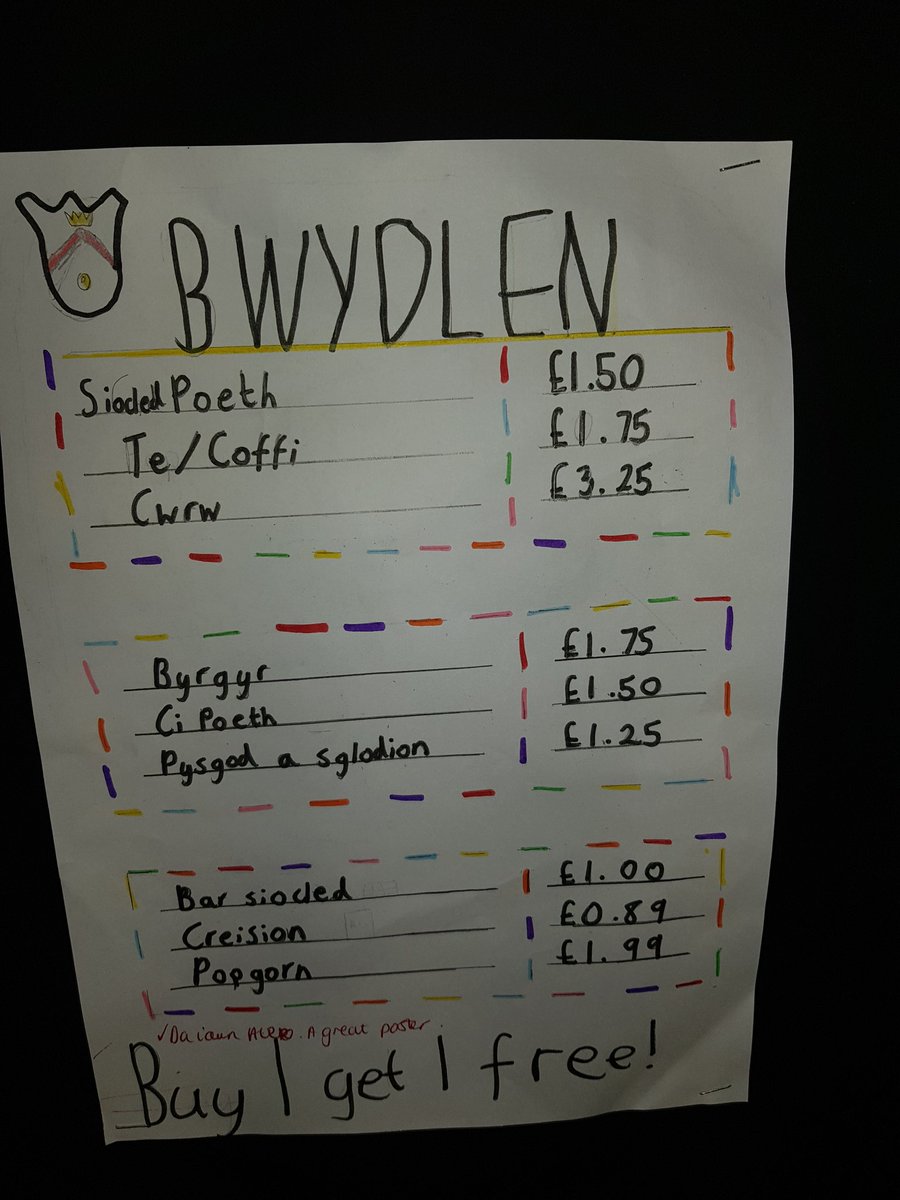 BWYDLEN
Sioded Poeth £1.50
Te/Coffi £1.75
Cwrw £3.25
Byrgyr £1.75
Ci Poeth £1.50
Pysgod a sglodion £1.25
Bar sioded £1.00
Creision £0.89
Popgorn £1.99
✓Da iawn. A great poster.
Buy 1 get 1 free!